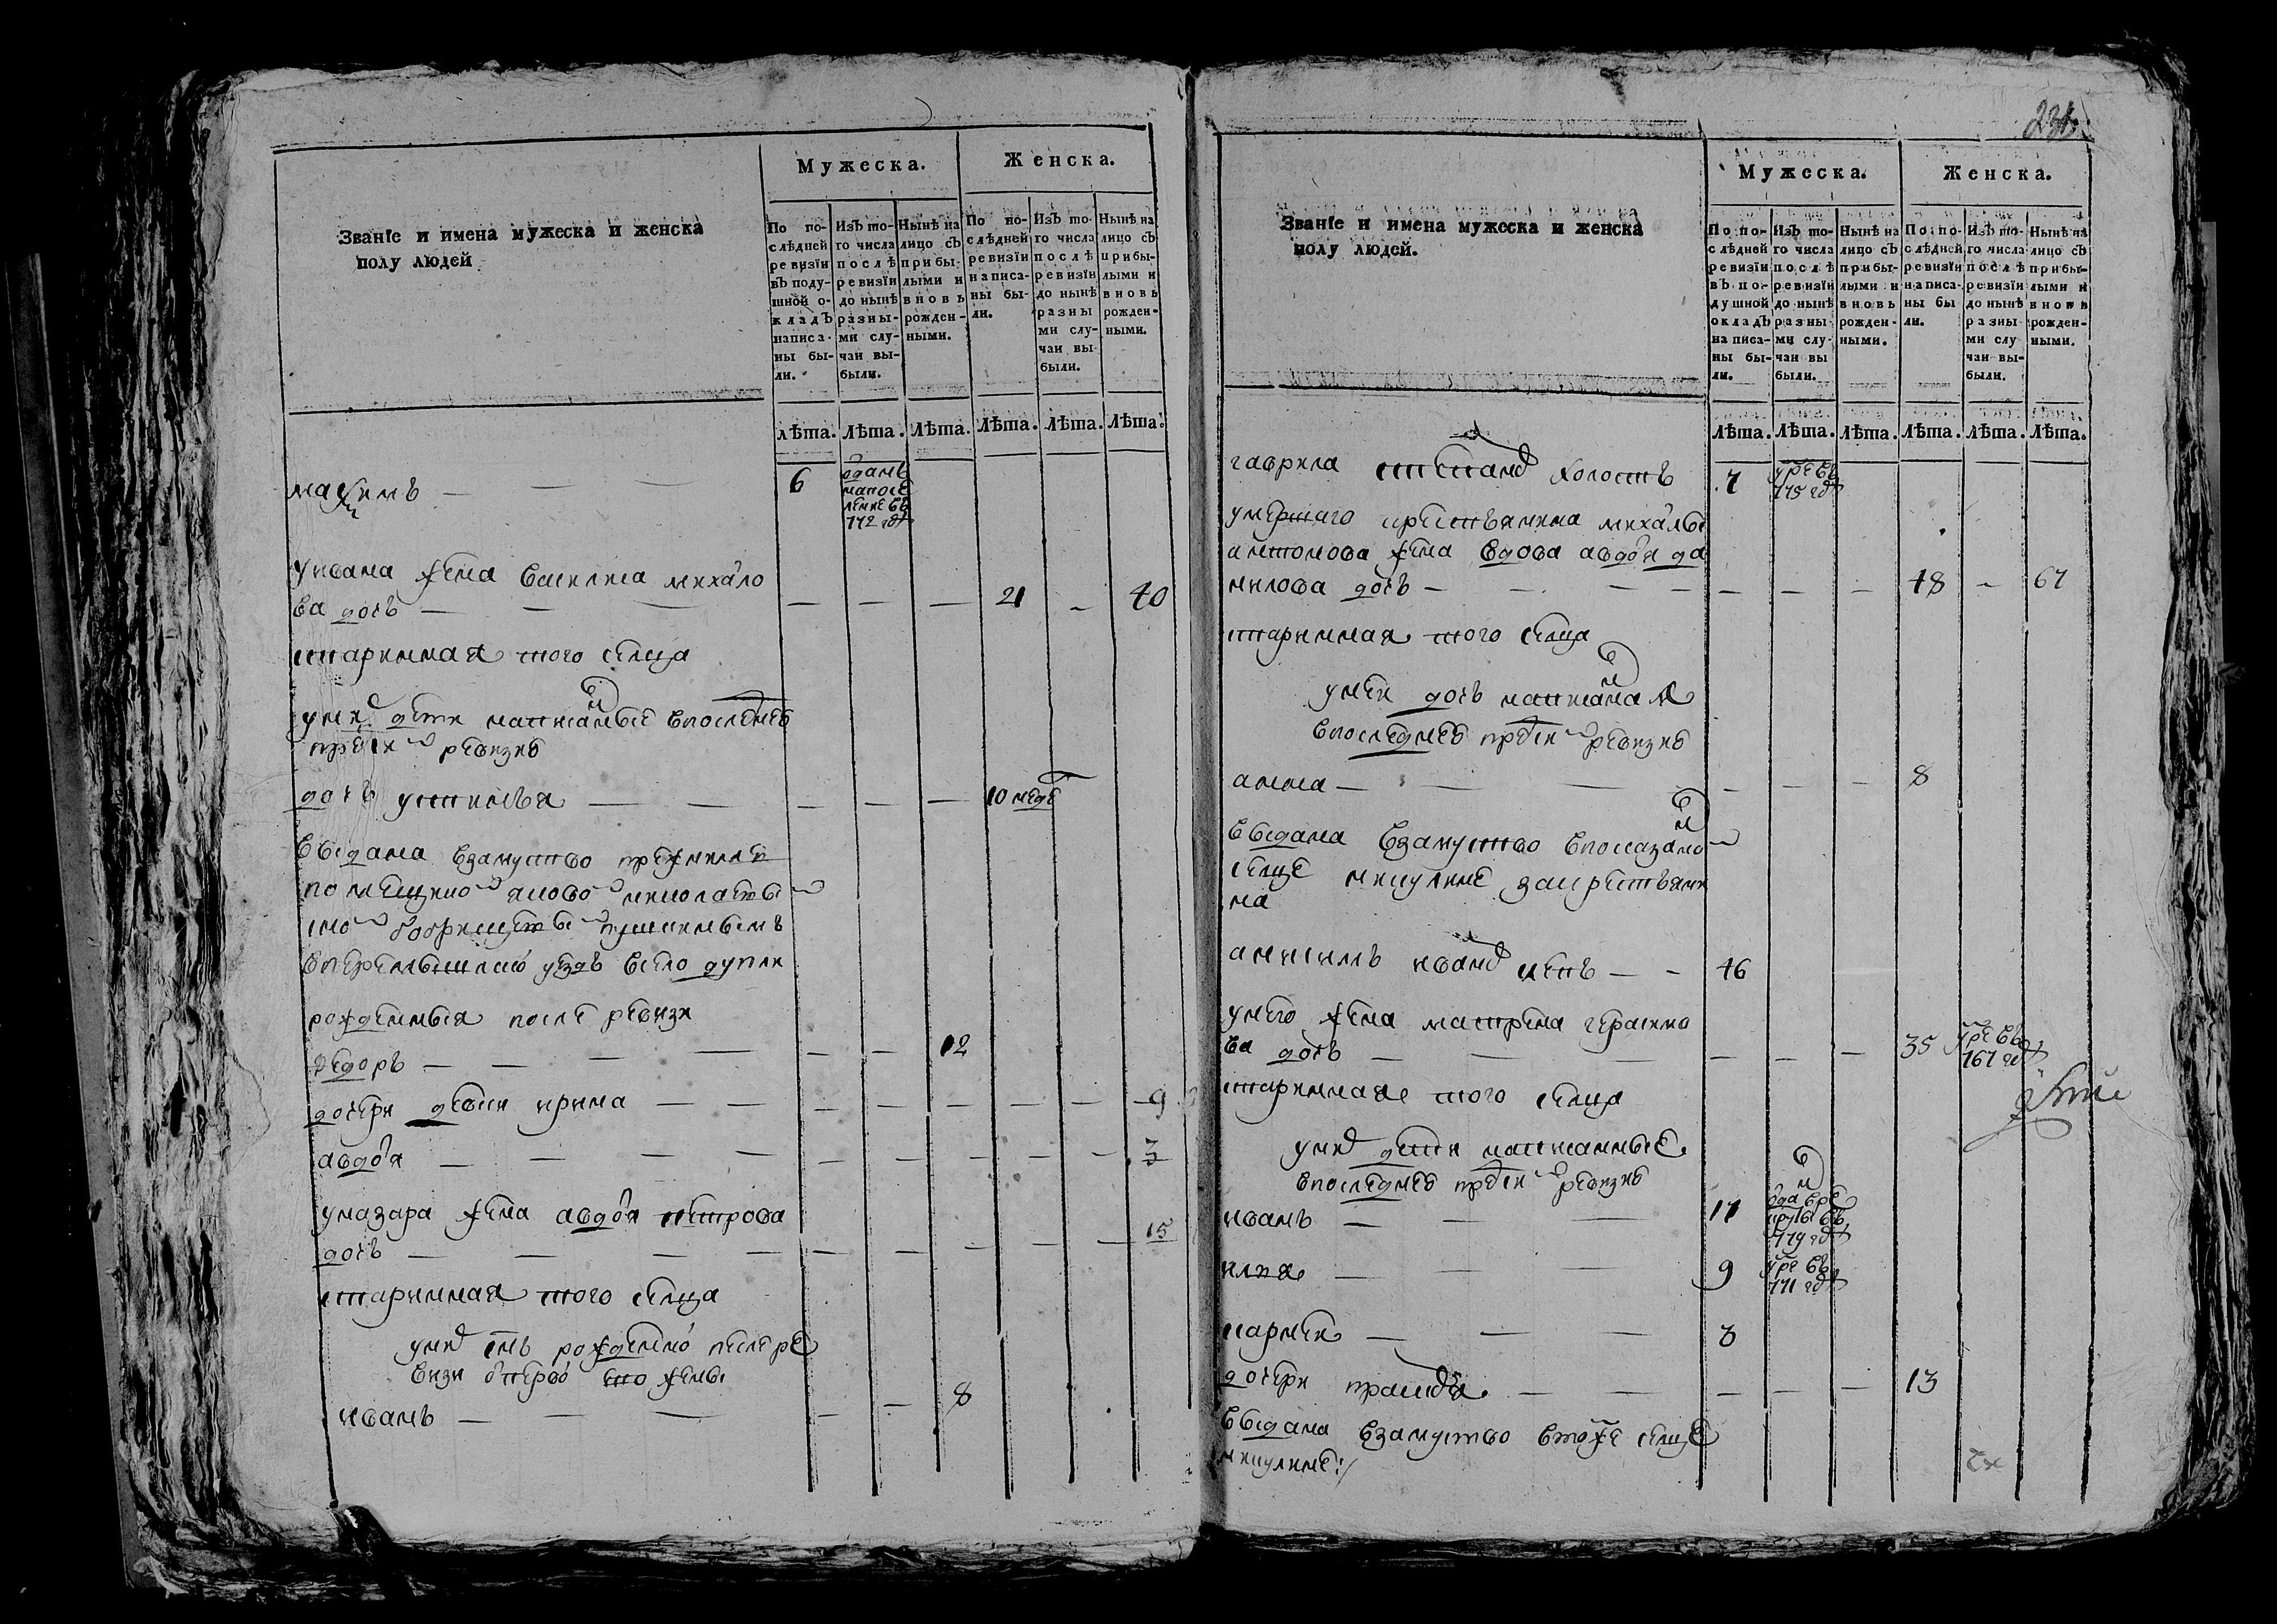 231
Званіе и имена мужеска и женска
полу людей
Мужеска.
Женска.
По по-
слѣдней
ревизіи
въ поду-
шной о-
кладъ
написа-
ны бы-
ли.
Изъ то-
го числа
послѣ
ревизіи
до нынѣ
разны-
ми слу-
чаи вы-
были.
Нынѣ на
лицо съ
прибы-
лыми и
вновь
рожден-
ными.
По по-
слѣдней
ревизіи
написа-
ны бы-
ли.
Изъ то-
го числа
послѣ
ревизіи
до нынѣ
разны
ми слу-
чаи вы
были.
Нынѣ на
лицо съ
прибы-
лыми и
вновь
рожден-
ными.
лѣта. лѣта. лѣта. лѣта. лѣта. лѣта.
максимъ — — — 6 оданъ
напосе
ление въ
772 гд
уивана жена василиса михаило
ва дочь — — — — — — 21 — 40
старинная того селца
уних дети написаные впоследнеи
пред сеи ревизии
дочь устинья — — — — — 10 неде
выдана взамуство
вперемышлскои уездъ всело дупли
рожденныя после ревизи
федоръ — — — — — — 12
дочери девки ирина — — — — — — — — 9
авдоя — — — — — — — — — — 3
уназара жена авдоя петрова
дочь — — — — — — — — — 15
старинная того селца
уних снъ рожденнои после ре
визи отпервои ево жены
иванъ — — — — — 8
Званіе и имена мужеска и женска
полу людей.
Мужеска.
Женска.
По по-
слѣдней
ревизіи
въ по-
душной
окладъ
написа-
ны бы-
ли.
Изъ то-
го числа
послѣ
ревизіи
до нынѣ
разны-
ми слу-
чаи вы
были.
Нынѣ на
лицо съ
прибы-
лыми и
вновь
рожден-
ными.
По по-
слѣдней
ревизіи
написа-
ны бы
ли.
Изъ то-
го числа
послѣ
ревизіи
до нынѣ
разны-
ми слу
чаи вы-
были.
Нынѣ на
лицо съ
прибы-
лыми и
вновь
рожден-
ными.
лѣта. лѣта. лѣта. лѣта. лѣта. лѣта.
гаврила степанов холостъ 7 умре въ
775 гд
умершаго крестьянина михаилы
антонова жена вдова авдоя да
нилова дочь — — — — — — — 48 — 67
старинная того селца
унеи дочь написаная
впоследнеи пред сеи ревизии
анна — — — — — — 8
выдана взамуство впоказаном
селце никулине закрестьяни
на
иванов — — 46
унего жена матрена герасимо
ва дочь — — — — — — 35 умре въ
767 гд
старинная того селца
уних дети написанные
впоследнеи пред сеи ревизии
иванъ — — — 11 одан вре
круты въ
779 гд
илья — — — 9 умре въ
771 гд
карнеи — — — 3
дочери прасковья — — — — — 13
выдана взамуство втоже селце
никулине:/